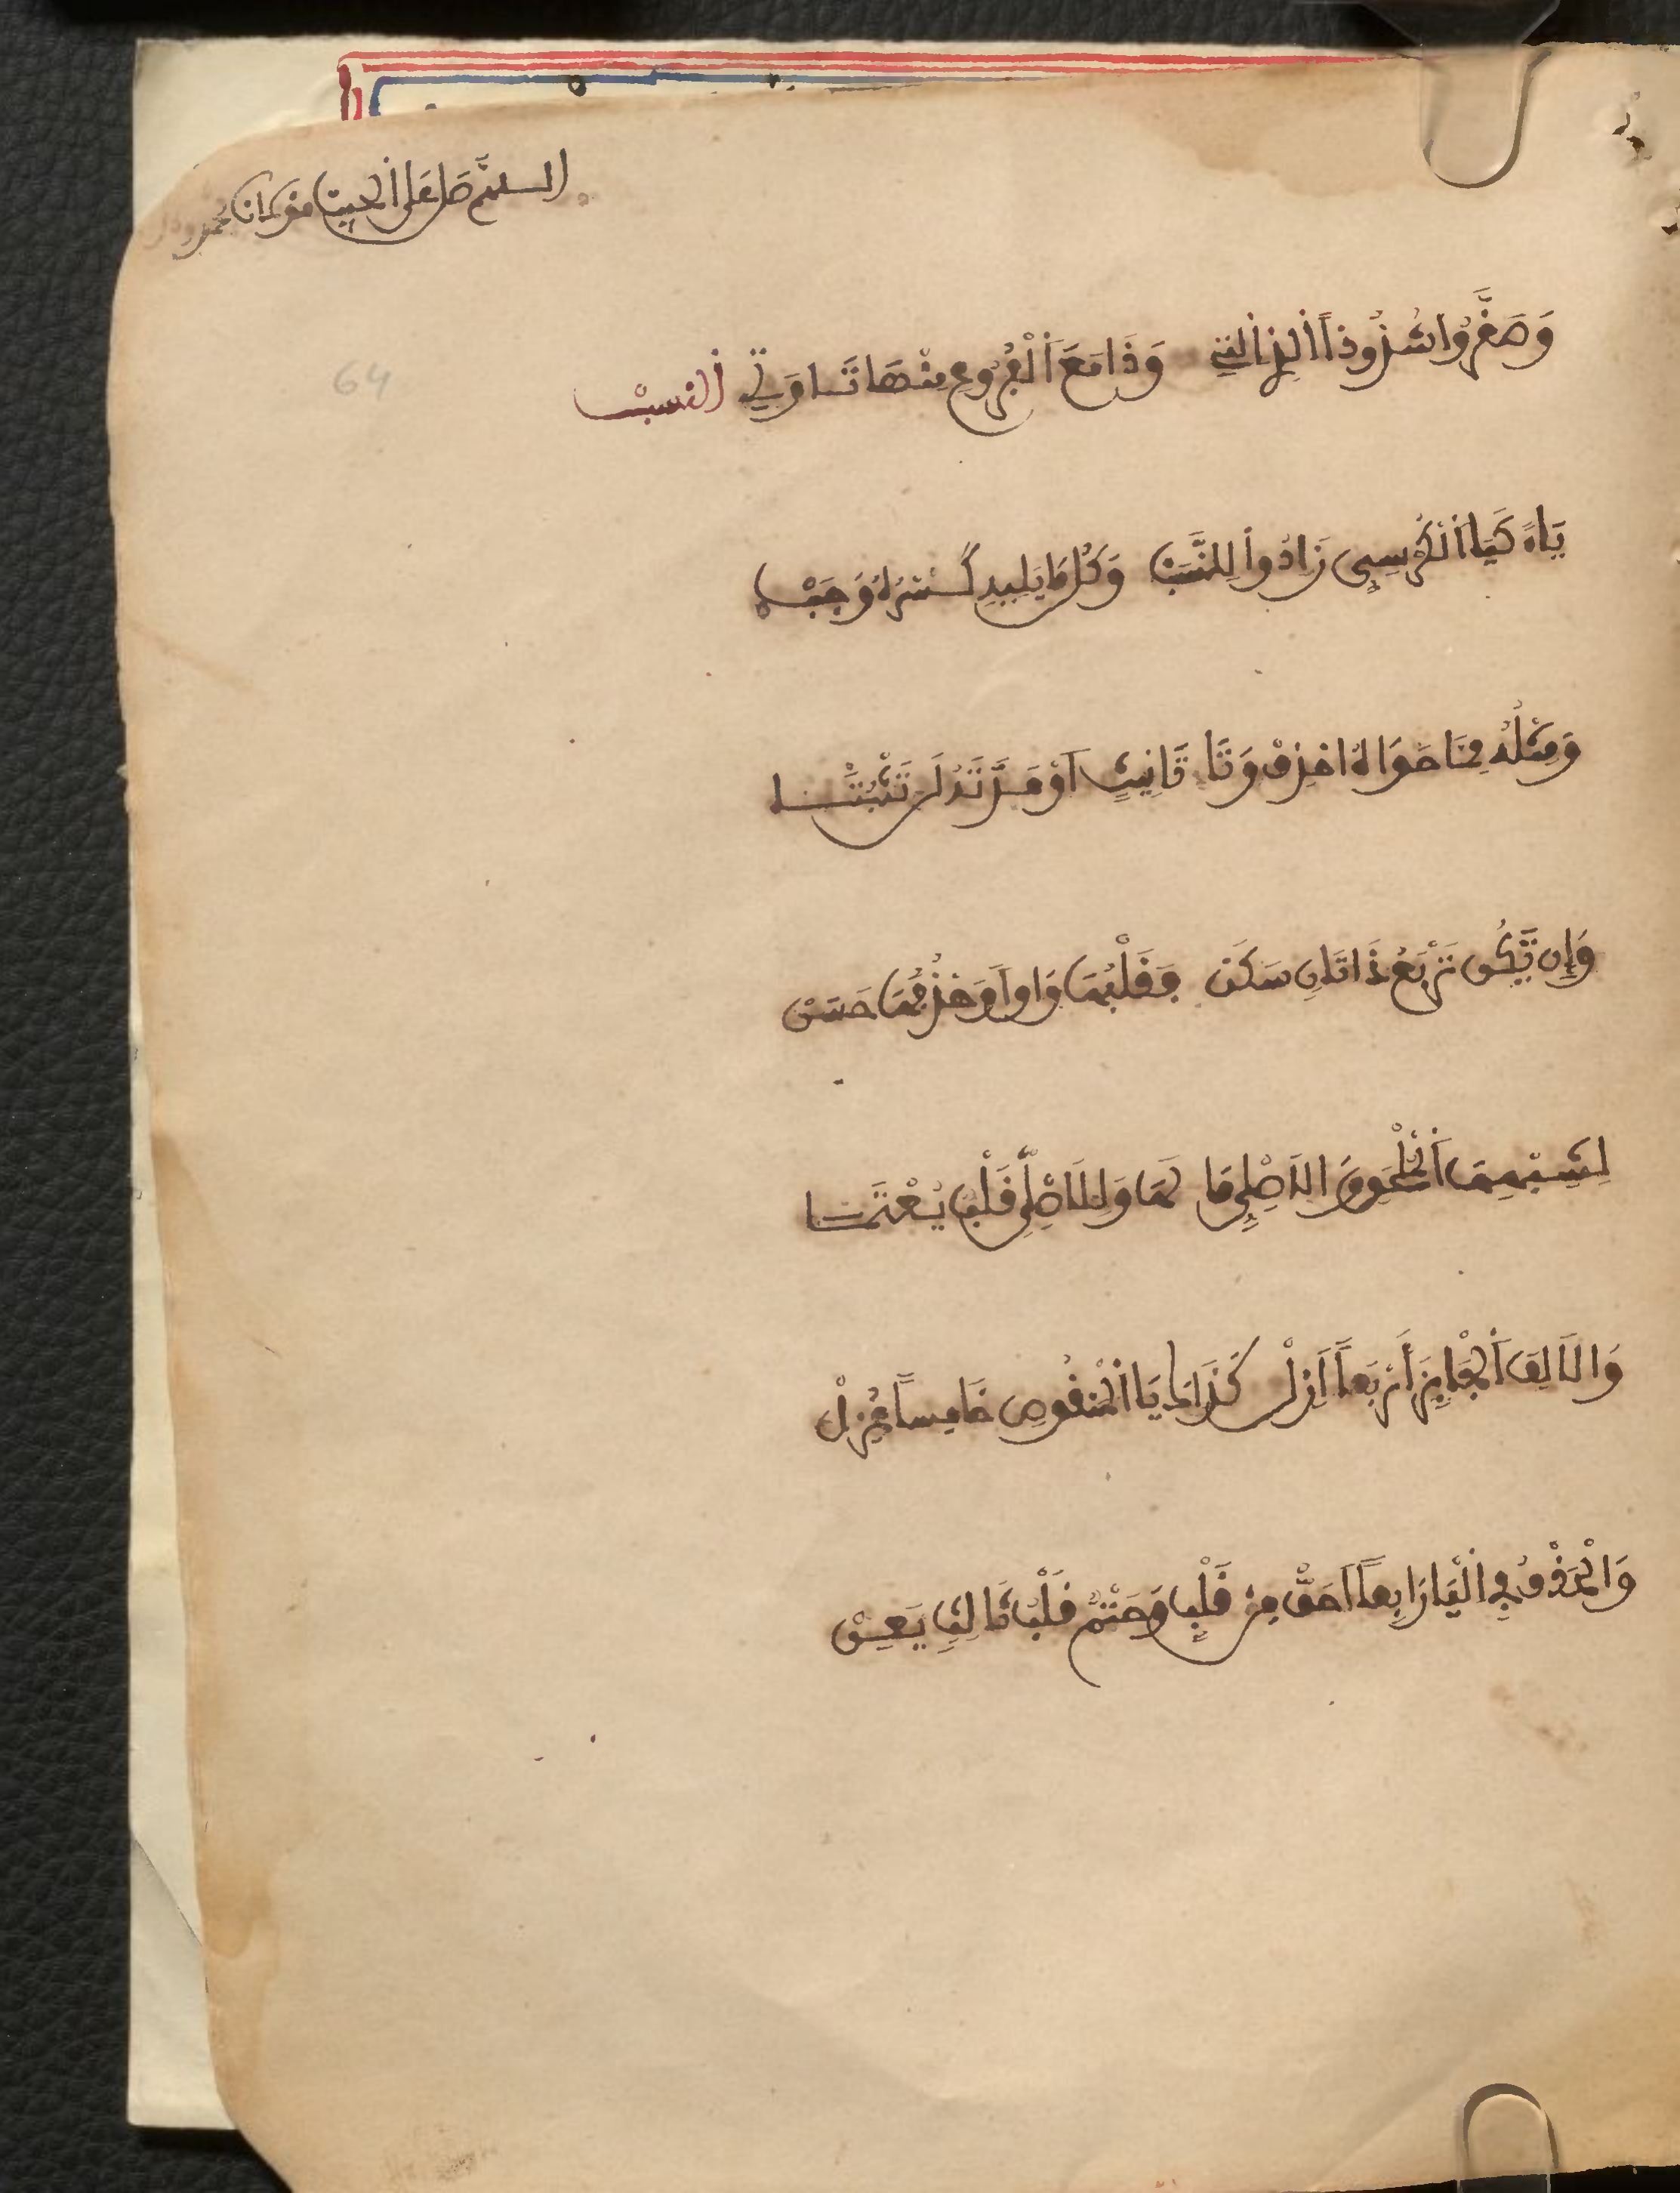 اللهم صل على الحبيب مولانا محمد
وَصَغَّرُوا شُذُوذاً الذِي التِي وَذَا مَعَ الْفُرُوعِ مِنْهَا تَا وَتِي النسب
64
يَاءً كَيَا الْكُرْسِيِّ زَادُوا لِلنَّسَبْ وَكُلُّ مَا يَلِيهِ كَسْرُهُ وَجَبْ
وَمِثْلُهُ مِمَّا حَوَاهُ احْذِفْ وَتَا تَانِيثٍ أوْ مَدَّتَهُ لَا تَثْبُتَا
وَإِن تَكُن تَرْبَعُ ذَا ثَانٍ سَكَن فَقَلْبُهَا وَاواً وَحَذْفُهَا حَسَنْ
لِشِبْهِهَا الْمُلْحَقِ وَالاَصْلِيِّ مَا لَهَا وَلِلاَصْلِيِّ قَلْبٌ يُعْتَمَا
وَالاَلِفَ الْجَايِزَ أَرْبَعاً اَزِلْ كَذَاكَ يَا الْمَنْقُوصِ خَامِساً عُزِلْ
وَالْحَذْفُ فِي الْيَا رَابِعاً اَحَقُّ مِنْ قَلْبٍ وَحَتْمٌ قَلْبُ ثَالِثٍ يَعِنْ